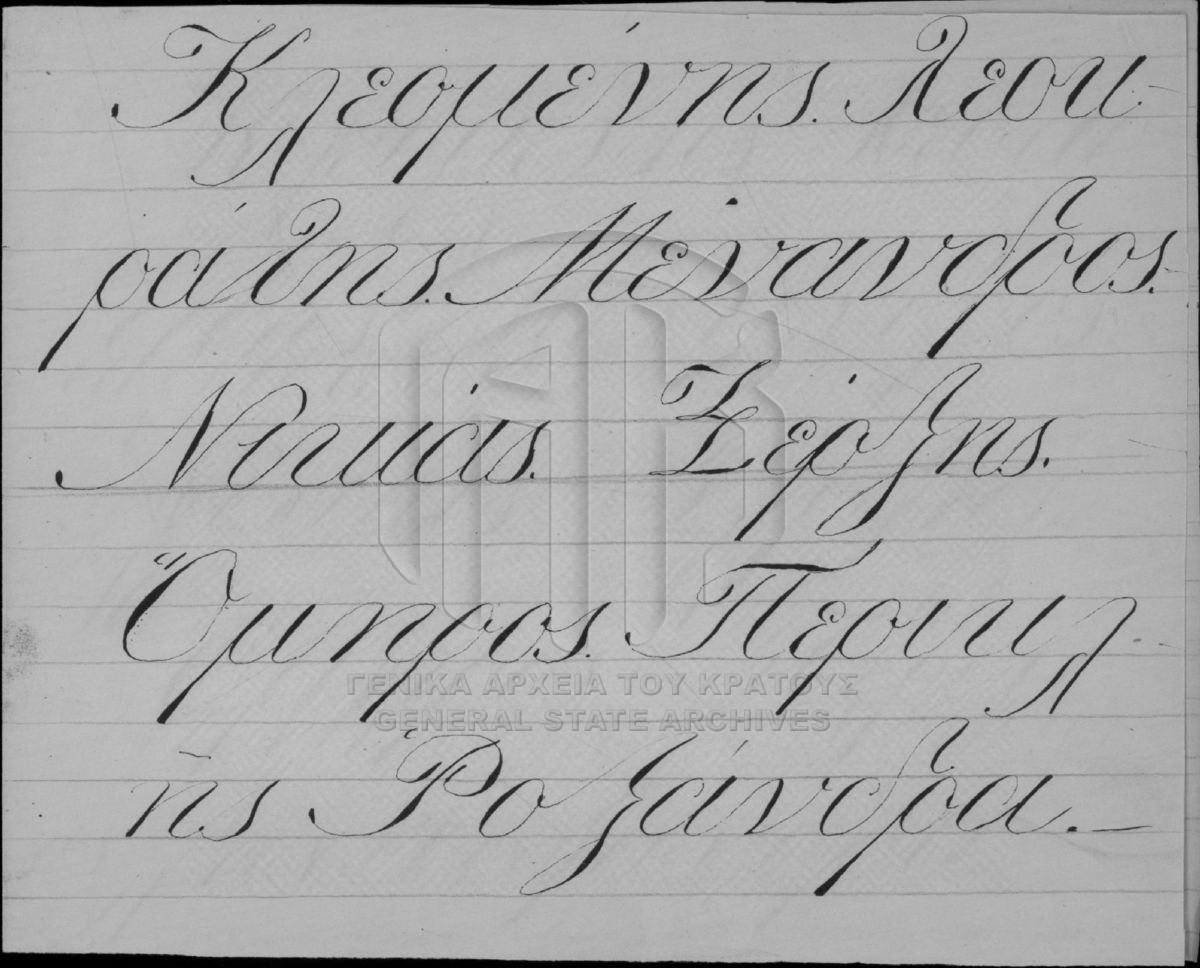 Κλεομένης. Λεοκ-
ράτης. Μένανδρος.
Νικιάς. Ξέρξης.
Ὅμηρος. Περικλ-
ῆς Ῥοξάνδρα.—
ΓΕΝΙΚΑ ΑΡΧΕΙΑ ΤΟΥ ΚΡΑΤΟΥΣ
GENERAL STATE ARCHIVES